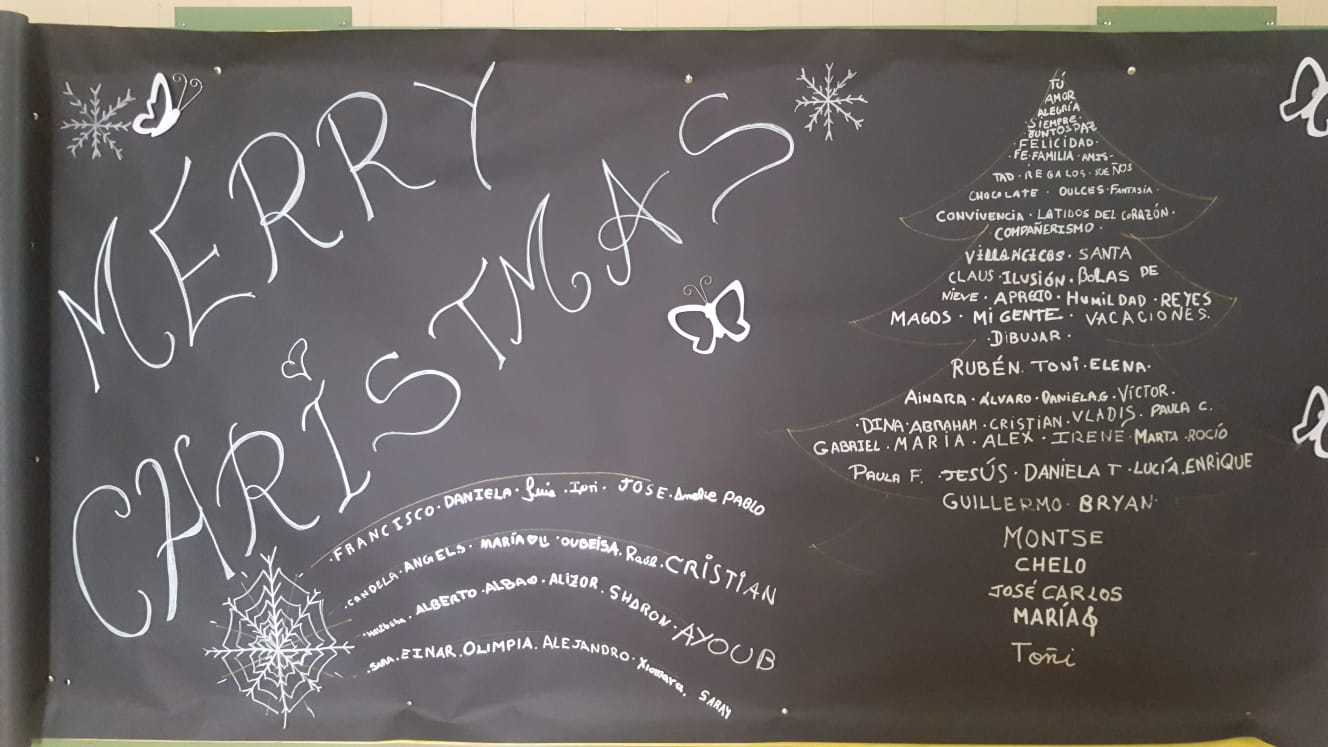 MERRY
CHRISTMAS
FRANCISCO · DANIELA · Luis · Ipri · JOSE · Amelie PABLO
CANDELA · ANGELS · MARÍA · OUBEISA · Raúl · CRISTIAN
ALBERTO · ALBAO · ALIZOR · SHARON · AYOUB
SARA · EINAR · OLIMPIA · ALEJANDRO · Xiomara, SARAY
TÚ
AMOR
ALEGRÍA
· SIEMPRE ·
JUNTOS PAZ
· FELICIDAD ·
· FE · FAMILIA · AMIS ·
TAD · REGALOS · SUEÑOS
CHOCOLATE · DULCES · FANTASÍA ·
CONVIVENCIA · LATIDOS DEL CORAZÓN ·
COMPAÑERISMO ·
VILLANCICOS · SANTA
CLAUS · ILUSIÓN · BOLAS DE
NIEVE · APREJO · HUMILDAD · REYES
MAGOS · MI GENTE · VACACIONES.
· DIBUJAR ·
RUBÉN TONI · ELENA ·
AINARA · ÁLVARO · DANIELA.G · VÍCTOR ·
· DINA · ABRAHAM · CRISTIAN · VLADIS · PAULA C.
GABRIEL · MARÍA · ALEX · IRENE · MARTA · ROCÍO
PAULA F. · JESÚS · DANIELA T · LUCÍA. ENRIQUE
GUILLERMO · BRYAN ·
MONTSE
CHELO
JOSÉ CARLOS
MARÍA
Toñi